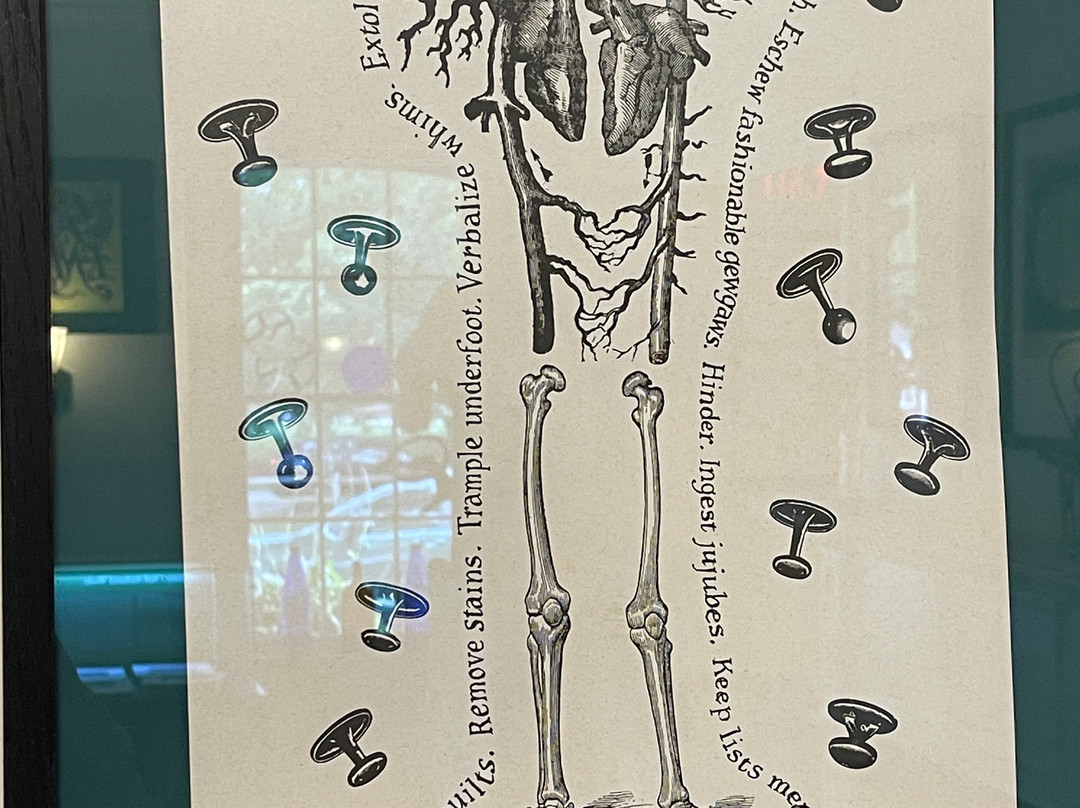 Eschew fashionable gewgaws. Hinder. Ingest jujubes. Keep lists
Remove stains. Trample underfoot. Verbalize whims. Extol